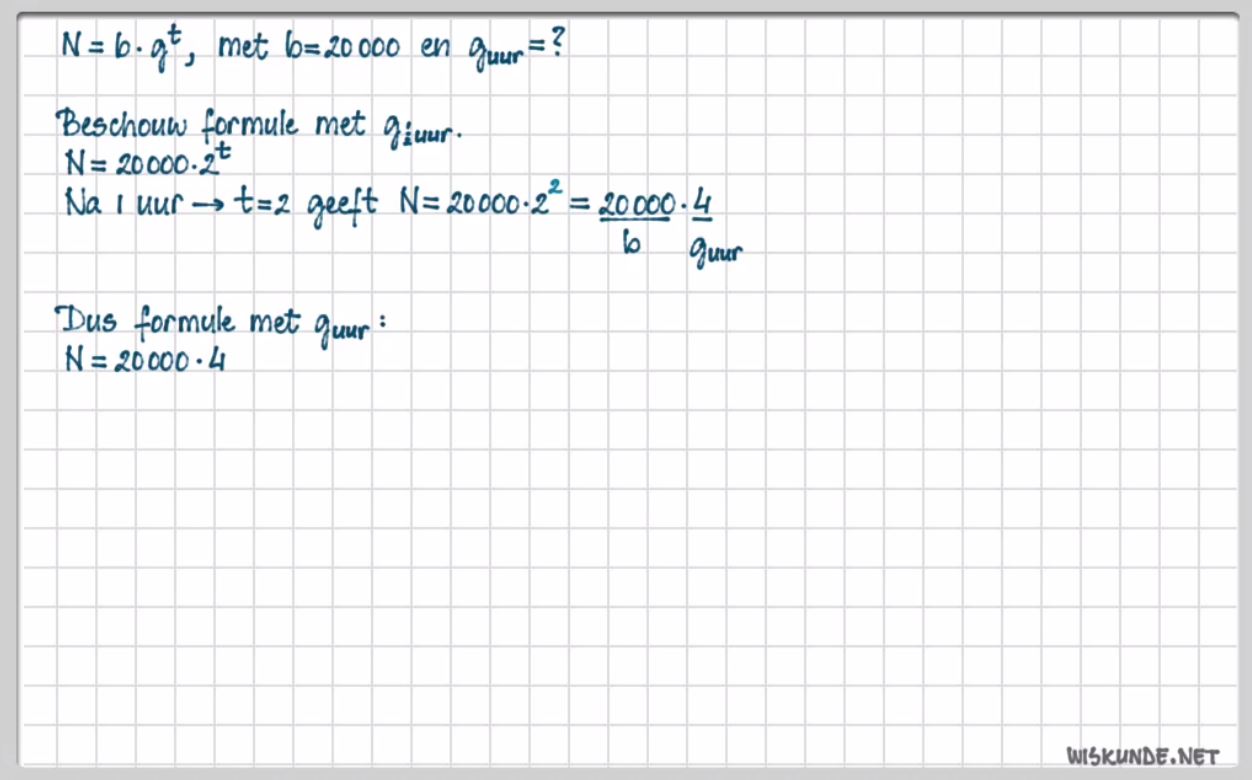 N = b · g^t, met b = 20 000 en g_uur = ?
Beschouw formule met g_½uur.
N = 20 000 · 2^t
Na 1 uur → t = 2 geeft N = 20 000 · 2^2 = 20 000 · 4
b g_uur
Dus formule met g_uur :
N = 20 000 · 4
WISKUNDE.NET